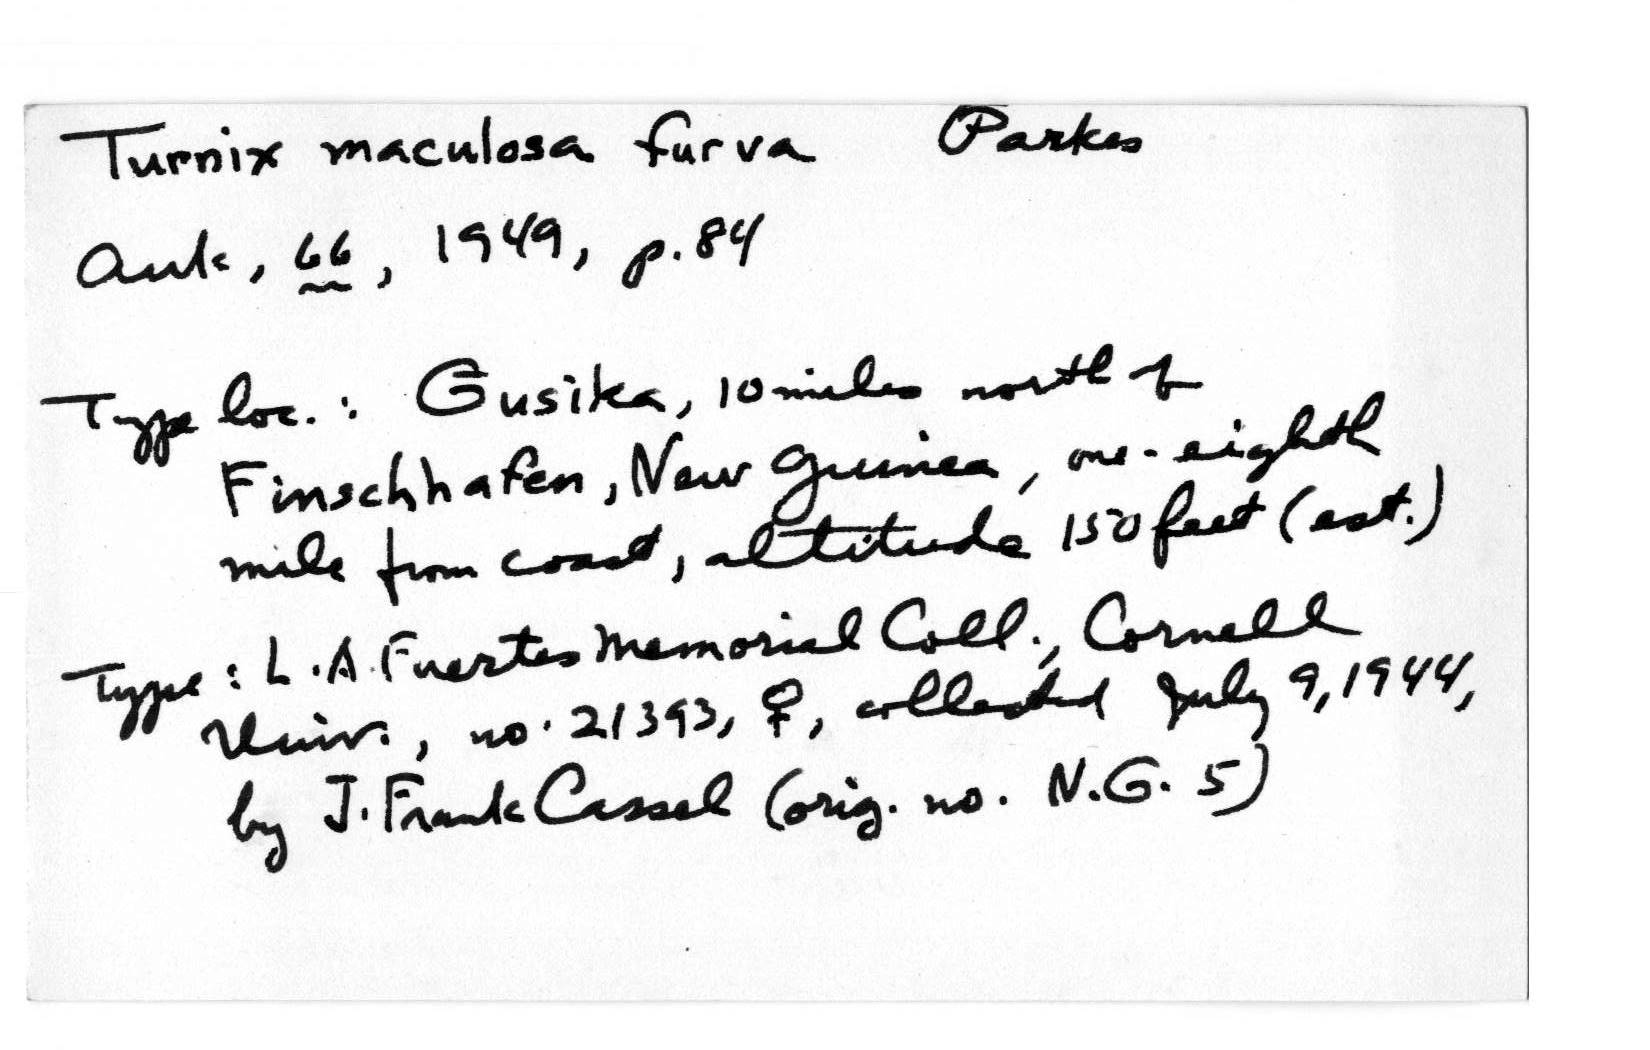 Turnix maculosa furva Parkes
Auk, 66, 1949, p. 84
Type loc.: Gusika, 10 miles north of
Finschhafen, New Guinea, one-eighth
mile from coast, altitude 150 feet (est.)
Type: L.A. Fuertes Memorial Coll., Cornell
Univ., no. 21393, ♀, collected July 9, 1944,
by J. Frank Cassel (orig. no. N.G. 5)